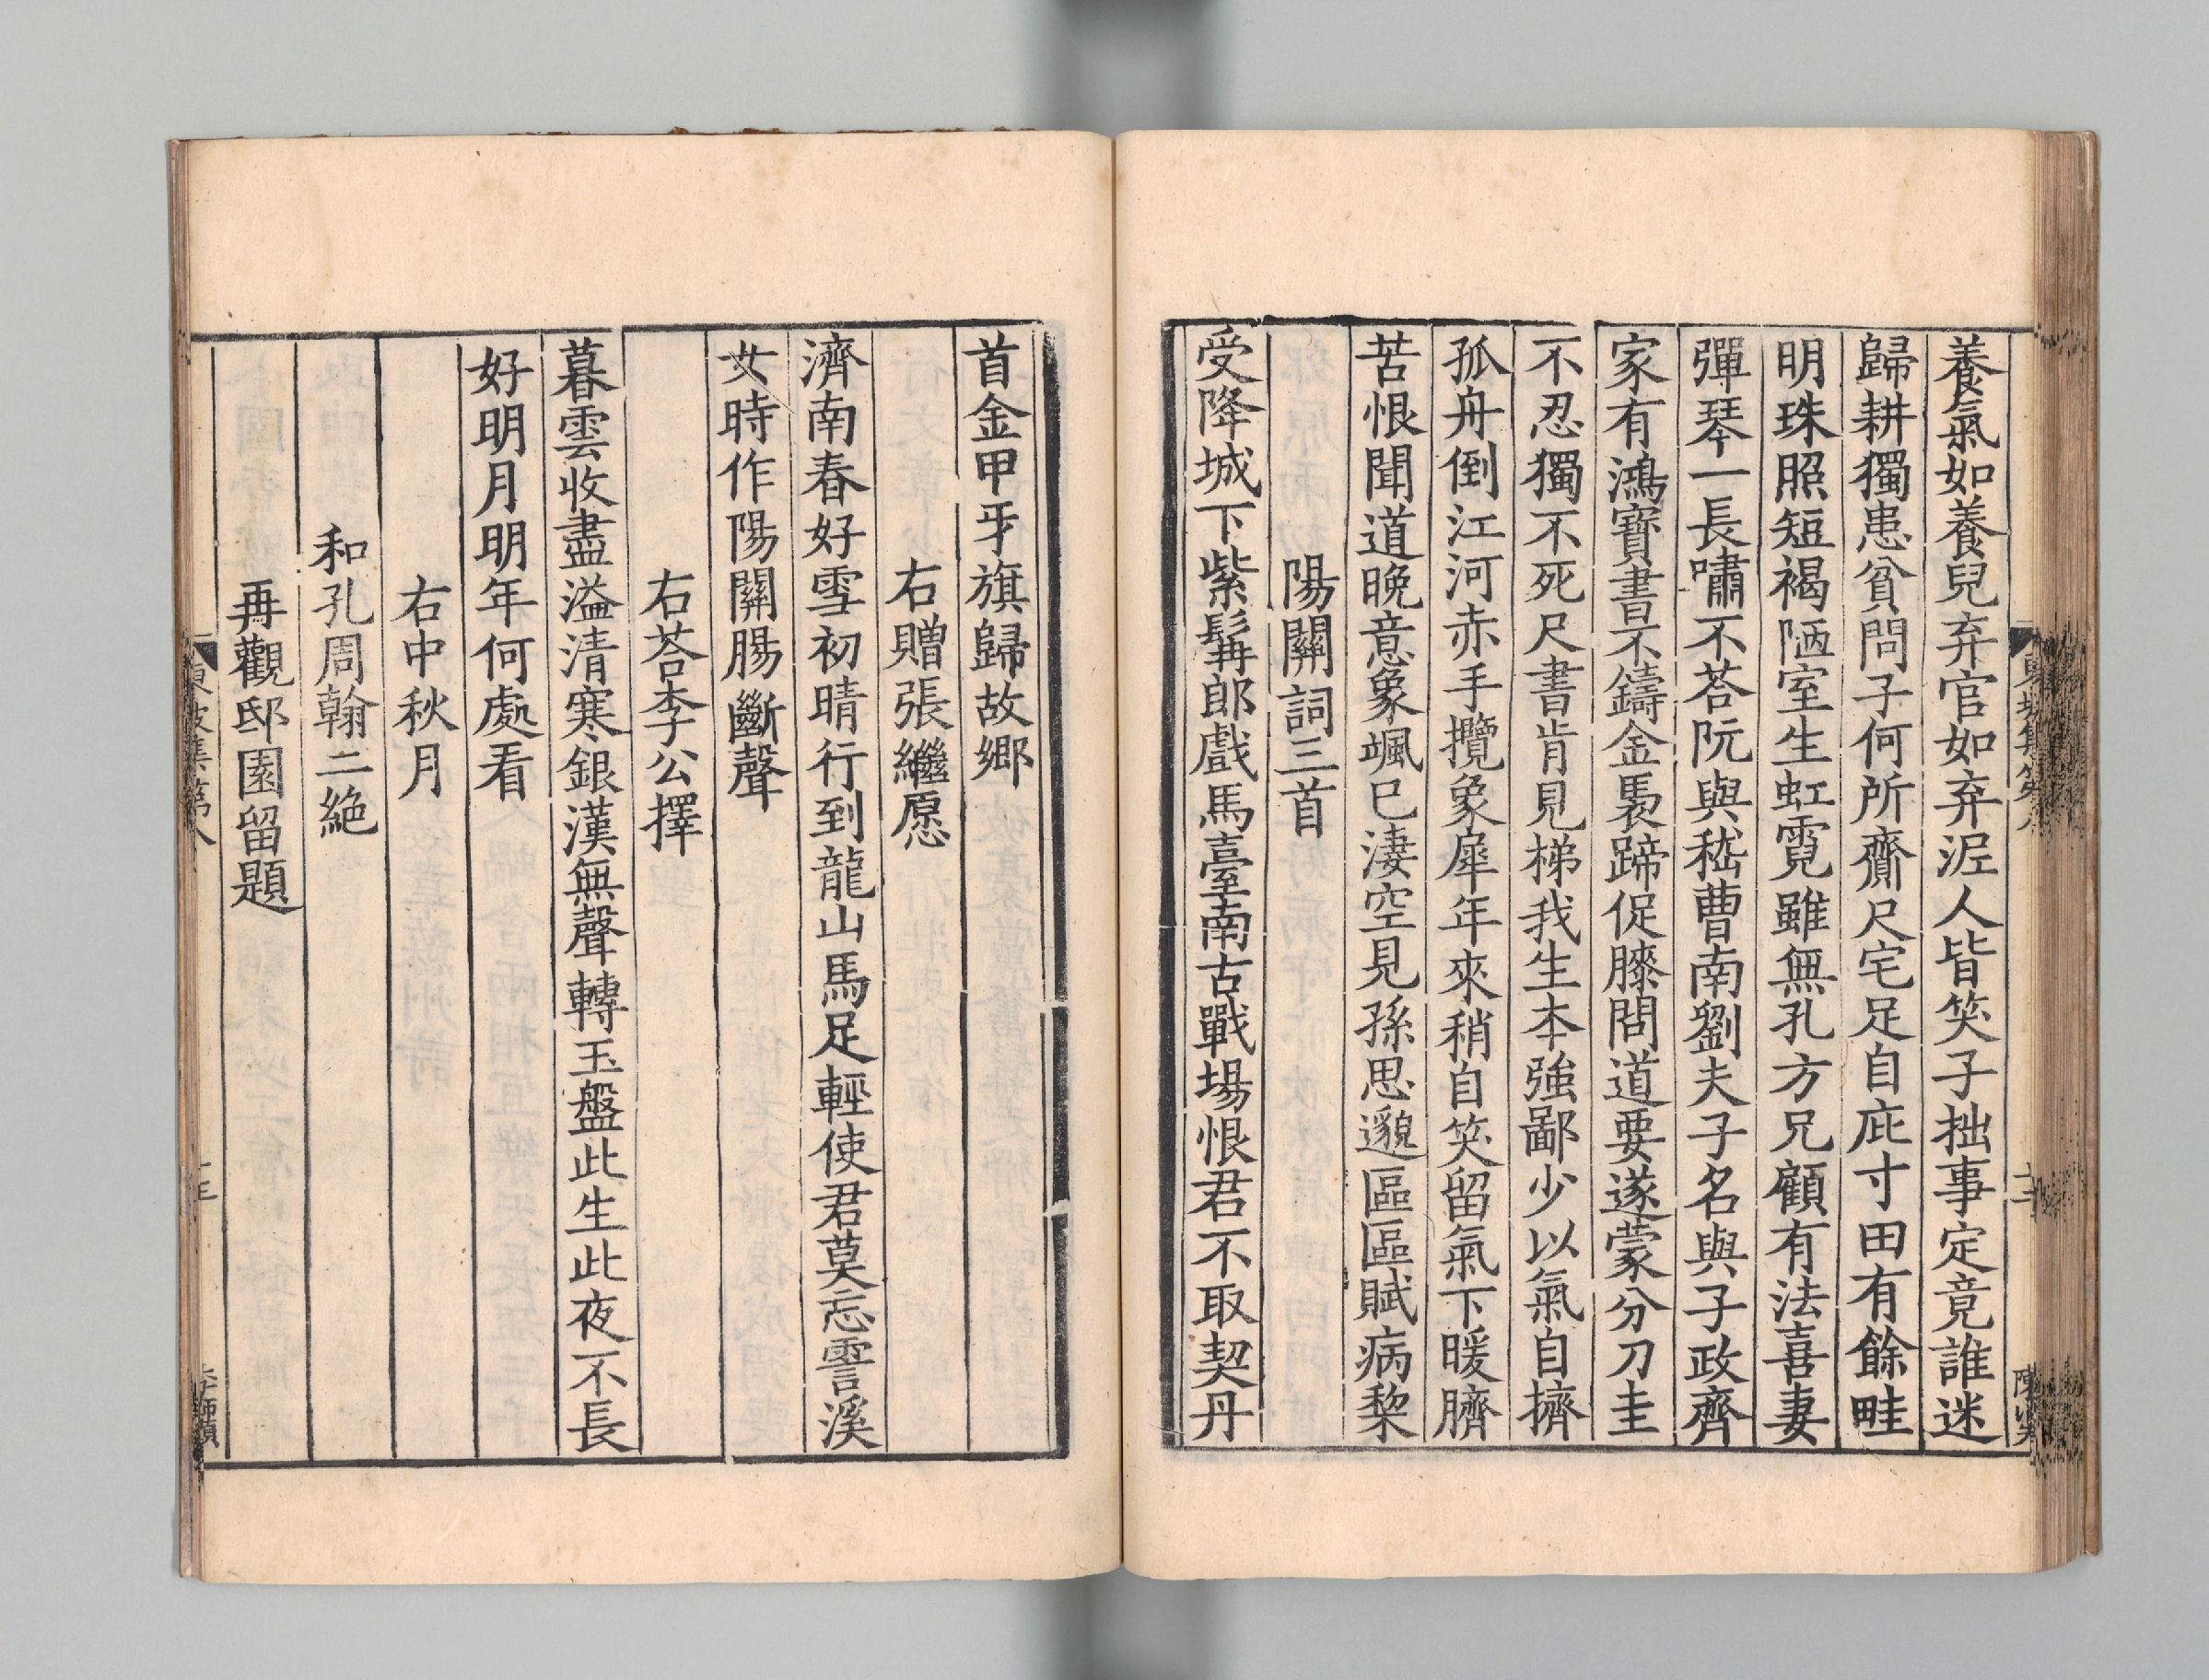 養氣如養兒弃官如弃泥人皆笑子拙事定竟誰迷
歸耕獨患貧問子何所齎尺宅足自庇寸田有餘畦
明珠照短褐陋室生虹霓雖無孔方兄顧有法喜妻
彈琴一長嘯不荅阮與嵇曹南劉夫子名與子政齊
家有鴻寶書不鑄金褭蹄促膝問道要遂蒙分刀圭
不忍獨不死尺書肯見梯我生本強鄙少以氣自擠
孤舟倒江河赤手攬象犀年來稍自笑留氣下暖臍
苦恨聞道晚意象颯已淒空見孫思邈區區賦病棃
陽關詞三首
受降城下紫髯郎戲馬臺南古戰場恨君不取契丹
首金甲牙旗歸故鄉
右贈張繼愿
濟南春好雪初晴行到龍山馬足輕使君莫忘霅溪
女時作陽關腸斷聲
右荅李公擇
暮雲收盡溢清寒銀漢無聲轉玉盤此生此夜不長
好明月明年何處看
右中秋月
和孔周翰二絶
再觀邸園留題
東坡集第八